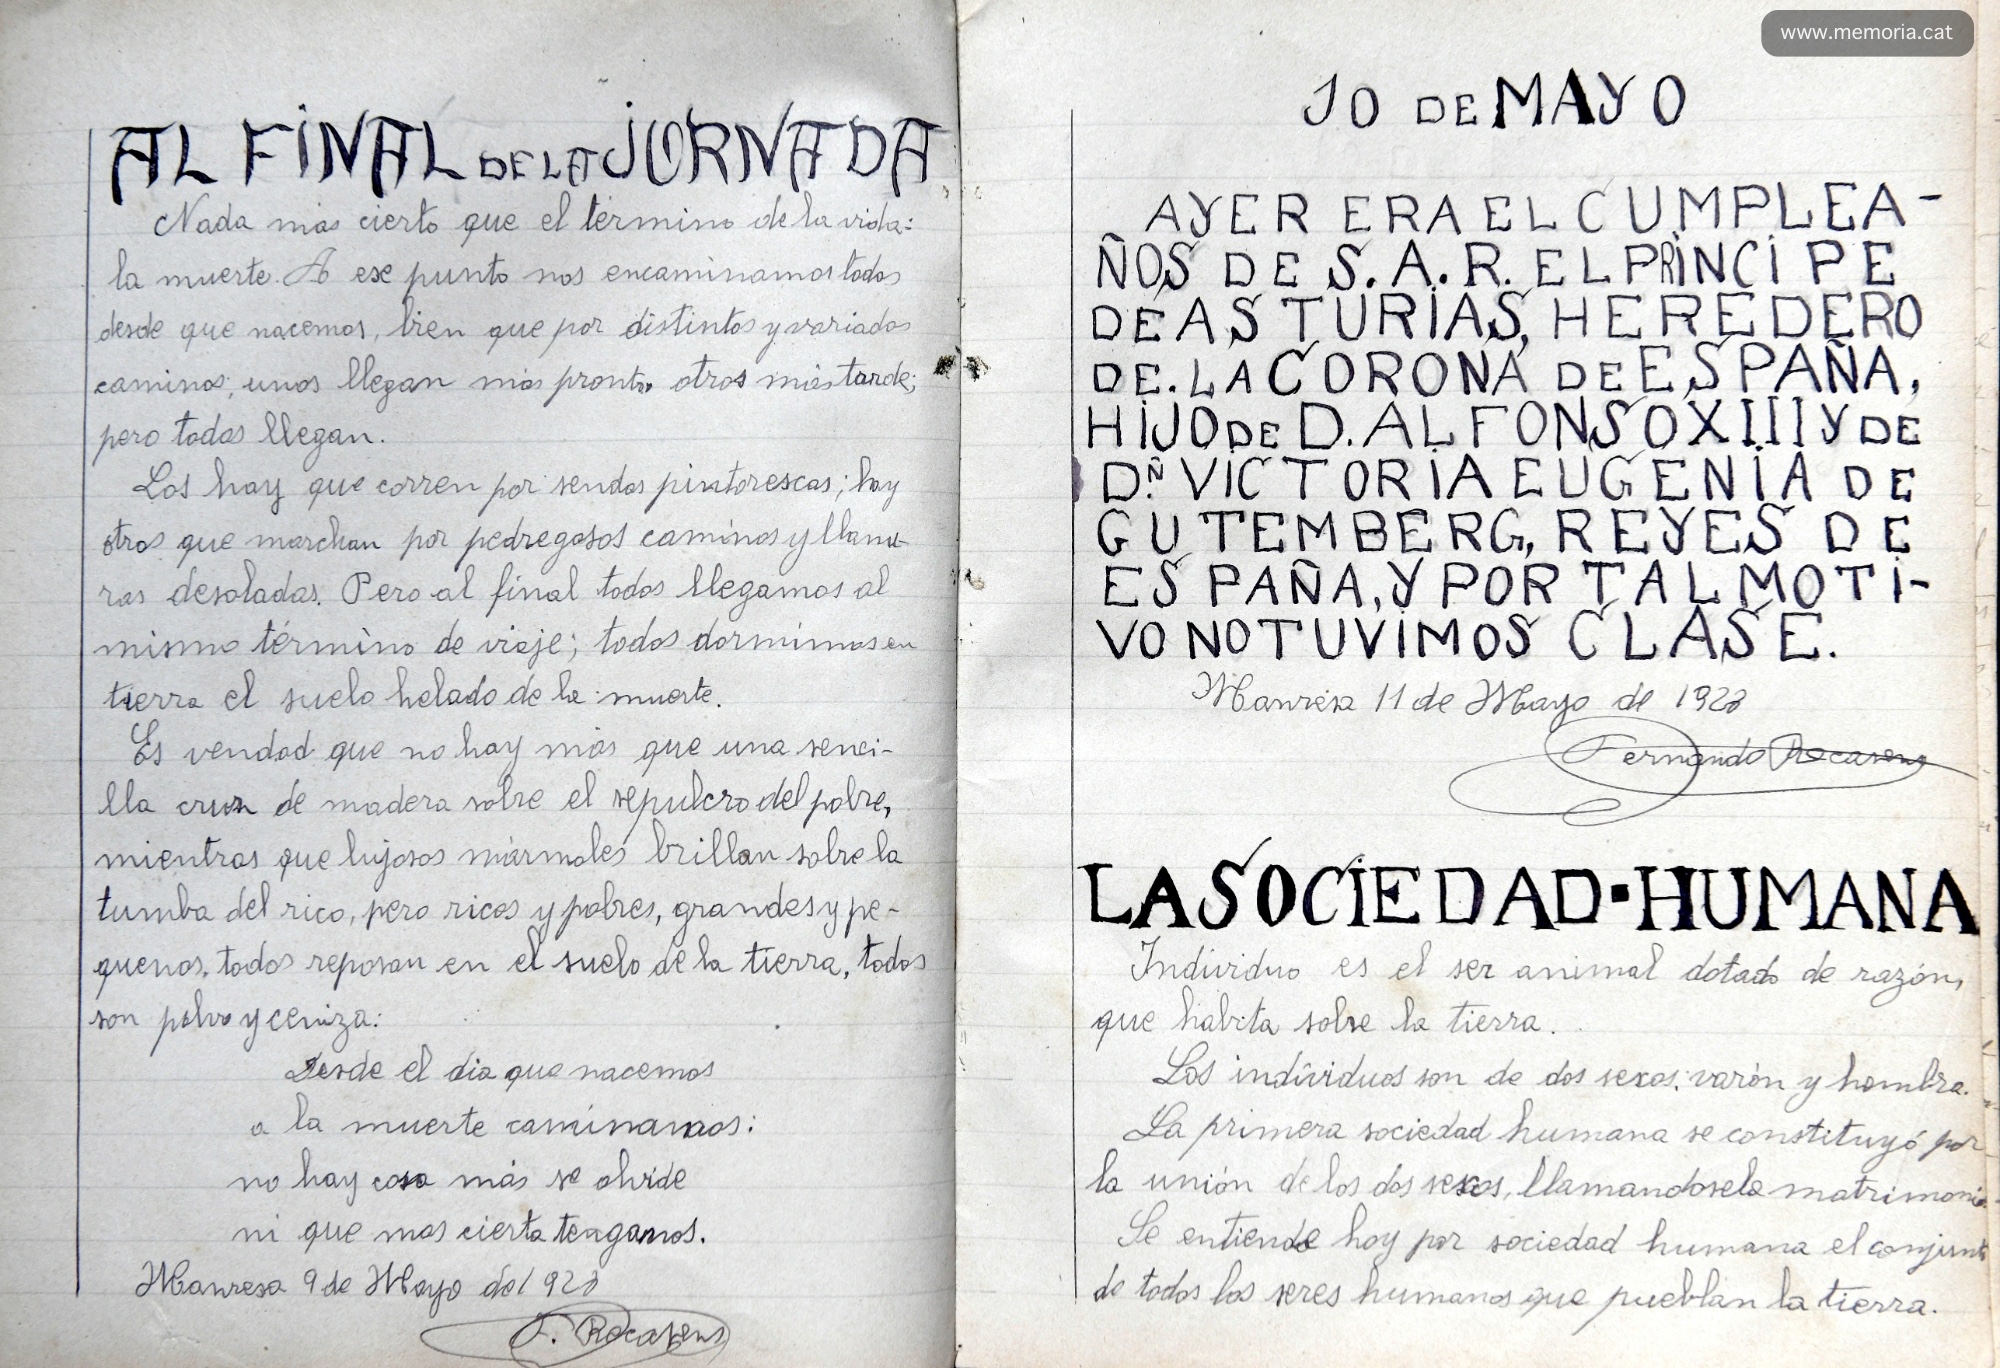 www.memoria.cat
AL FINAL DE LA JORNADA
Nada más cierto que el término de la vida:
la muerte. A ese punto nos encaminamos todos
desde que nacemos, bien que por distintos y variados
caminos; unos llegan más pronto, otros más tarde;
pero todos llegan.
Los hay que corren por sendas pintorescas; hay
otros que marchan por pedregosos caminos y llanu-
ras desoladas. Pero al final todos llegamos al
mismo término de viaje; todos dormimos en
tierra el suelo helado de la muerte.
Es verdad que no hay más que una senci-
lla cruz de madera sobre el sepulcro del pobre,
mientras que lujosos mármoles brillan sobre la
tumba del rico, pero ricos y pobres, grandes y pe-
quenos, todos reposan en el suelo de la tierra, todos
son polvo y ceniza:
Desde el dia que nacemos
a la muerte caminamos:
no hay cosa más se olvide
ni que mas cierta tengamos.
Manresa 9 de Mayo de 1928
F. Recasens
10 DE MAYO
AYER ERA EL CUMPLEA-
ÑOS DE S.A.R. EL PRÌNCIPE
DE ASTURIAS, HEREDERO
DE. LA CORONA DE ESPAÑA,
HIJO DE D. ALFONSO XIII Y DE
D.Ñ VICTORIA EUGENIA DE
GUTEMBERG, REYES DE
ESPAÑA, Y POR TAL MOTI-
VO NO TUVIMOS CLASE.
Manresa 11 de Mayo de 1928
Fernando Recasens
LA SOCIEDAD·HUMANA
Individuo es el ser animal dotado de razón,
que habita sobre la tierra.
Los individuos son de dos sexos: varón y hembra.
La primera sociedad humana se constituyó por
la unión de los dos sexos, llamandosela matrimonio.
Se entiende hoy por sociedad humana el conjunto
de todos los seres humanos que pueblan la tierra.